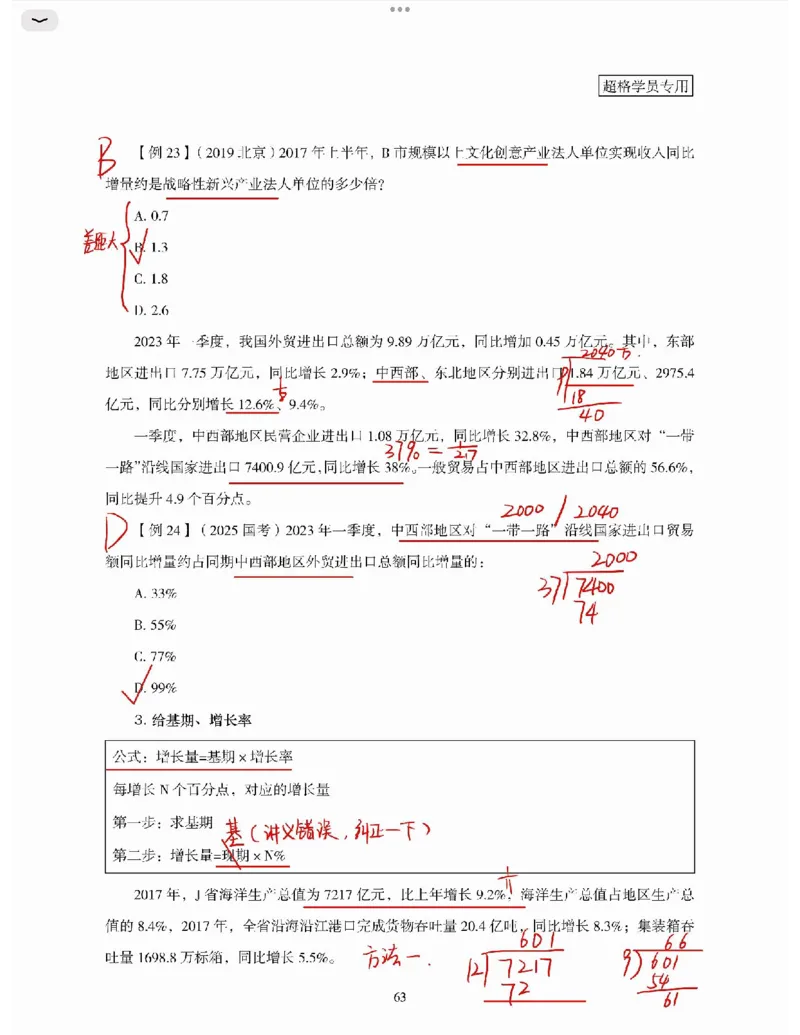 超格学员专用
B 【例 23】（2019 北京）2017 年上半年，B 市规模以上文化创意产业法人单位实现收入同比
增量约是战略性新兴产业法人单位的多少倍？
A. 0.7
差距大 B. 1.3
C. 1.8
D. 2.6
2023 年一季度，我国外贸进出口总额为 9.89 万亿元，同比增加 0.45 万亿元。其中，东部
2040
地区进出口 7.75 万亿元，同比增长 2.9%；中西部、东北地区分别进出口 1.84 万亿元、2975.4
18
亿元，同比分别增长 12.6%、9.4%。
40
一季度，中西部地区民营企业进出口 1.08 万亿元，同比增长 32.8%，中西部地区对“一带
37% = 1/2.7
一路”沿线国家进出口 7400.9 亿元，同比增长 38%。一般贸易占中西部地区进出口总额的 56.6%，
同比提升 4.9 个百分点。
2000 / 2040
D 【例 24】（2025 国考）2023 年一季度，中西部地区对“一带一路”沿线国家进出口贸易
额同比增量约占同期中西部地区外贸进出口总额同比增量的：
2000
A. 33%
37 7400
74
B. 55%
C. 77%
D. 99%
3. 给基期、增长率
公式：增长量=基期×增长率
每增长 N 个百分点，对应的增长量
第一步：求基期
基（讲义错误，纠正一下）
第二步：增长量=现期×N%
1/11
2017 年，J 省海洋生产总值为 7217 亿元，比上年增长 9.2%，海洋生产总值占地区生产总
值的 8.4%，2017 年，全省沿海沿江港口完成货物吞吐量 20.4 亿吨，同比增长 8.3%；集装箱吞
601 66
吐量 1698.8 万标箱，同比增长 5.5%。 方法一. 12 7217 9 601
72 54
61
63